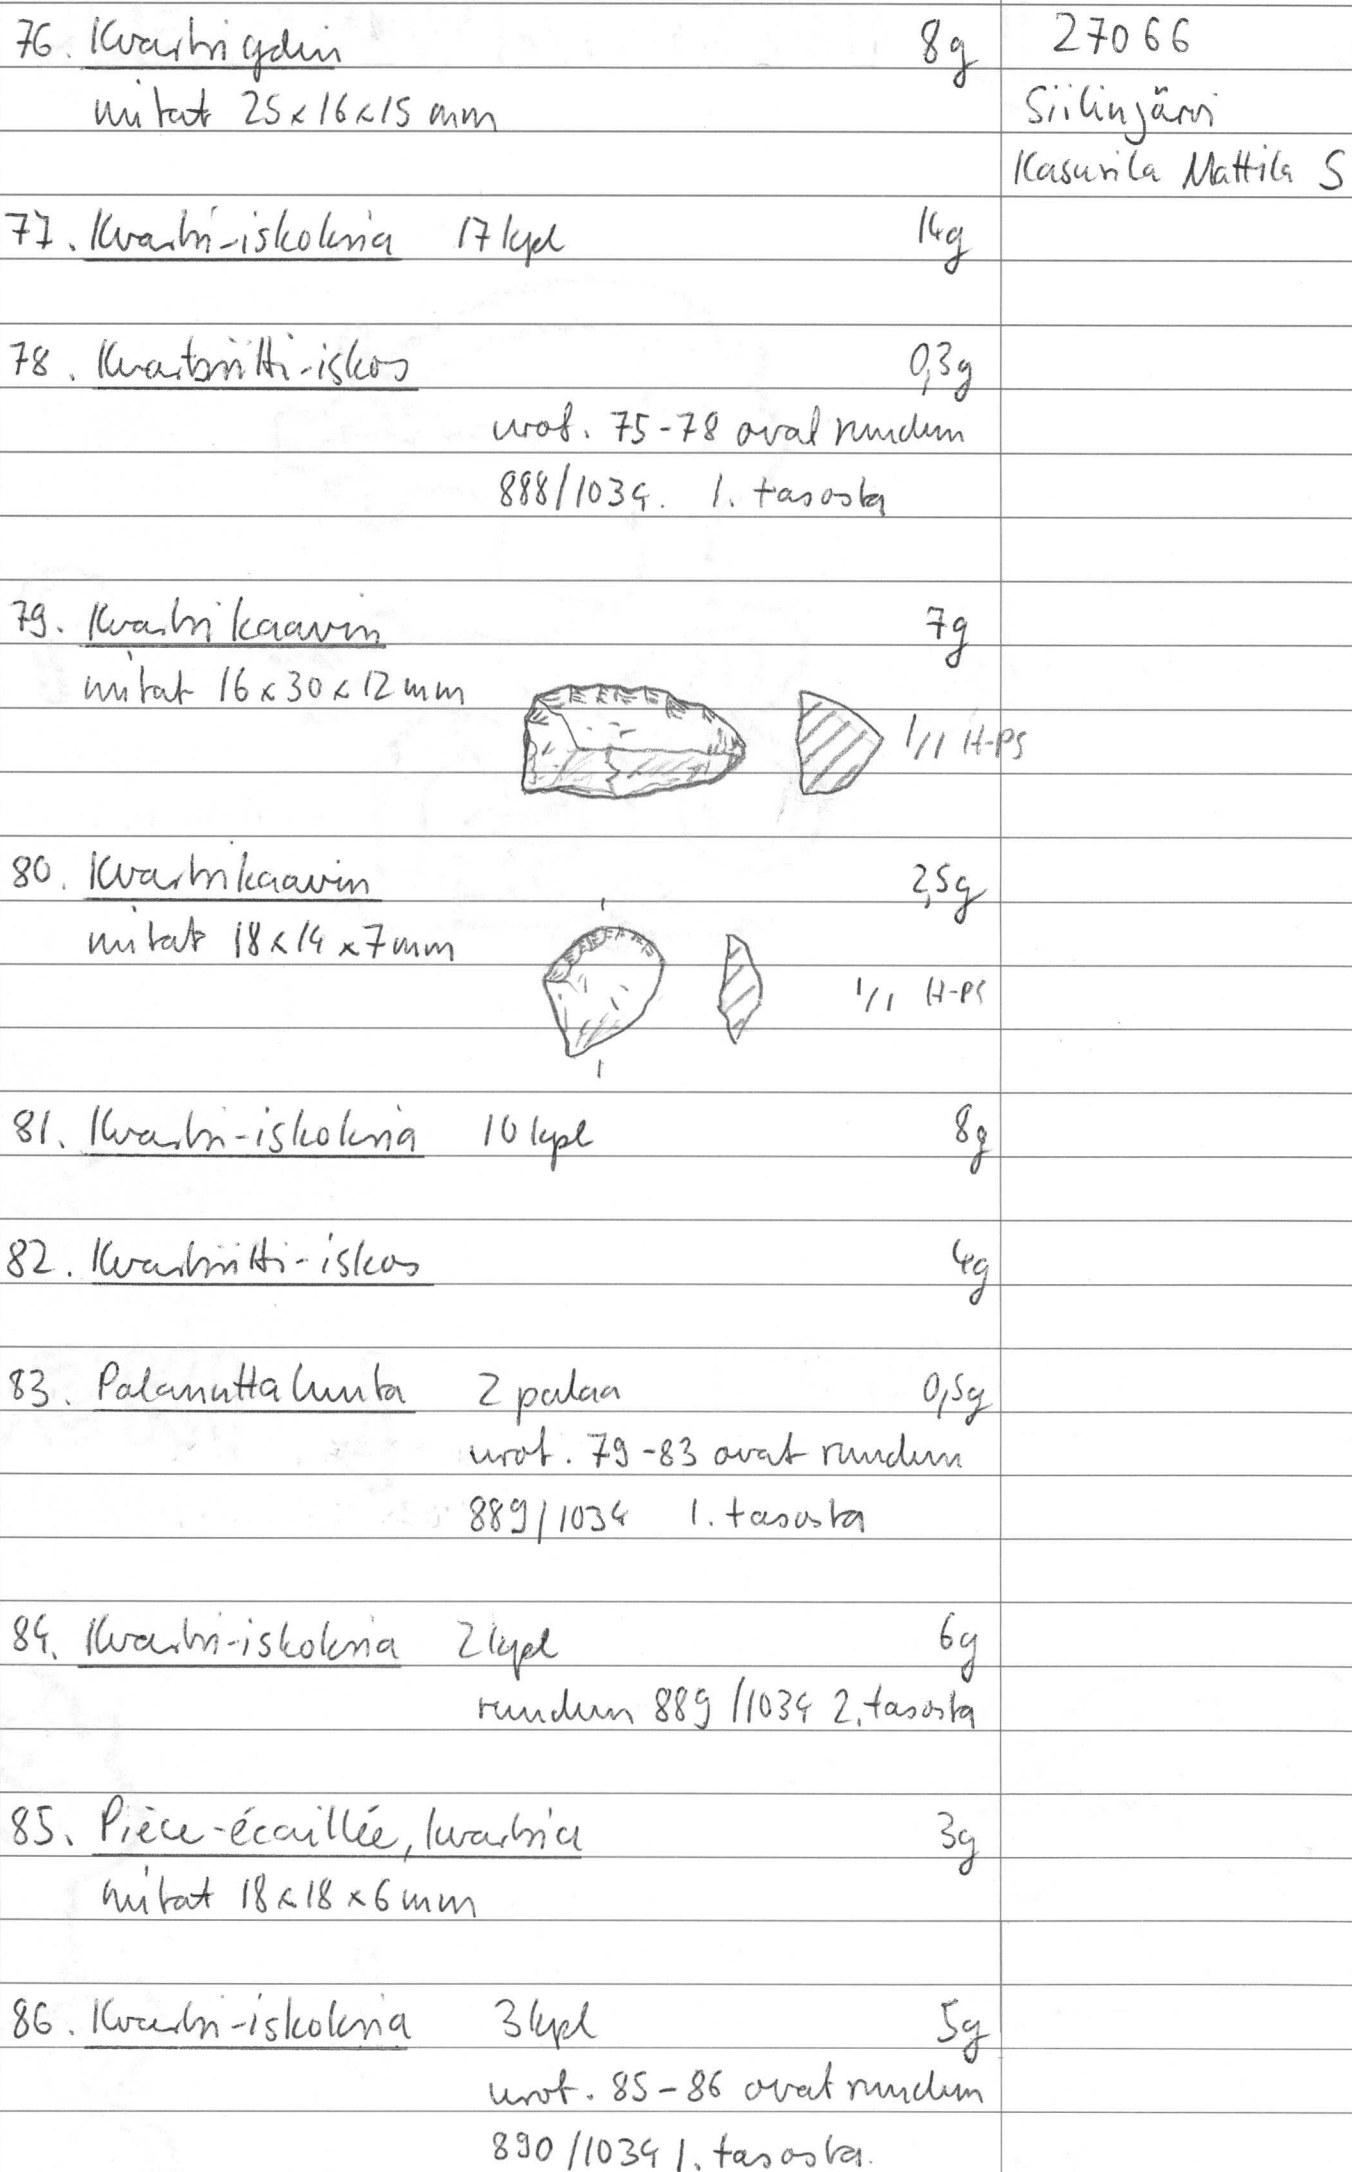 76. Kvartsiydin 8g
mitat 25x16x15 mm
27066
Siilinjärvi
Kasurila Mattila S
77. Kvartsi-iskoksia 17 kpl 14g
78. Kvartsiitti-iskos 0,3g
nrot. 75-78 ovat ruudun
888/1034. 1. tasosta
79. Kvartsikaavin 7g
mitat 16x30x12mm
1/1 H-PS
80. Kvartsikaavin 2,5g
mitat 18x14x7mm
1/1 H-PS
81. Kvartsi-iskoksia 10 kpl 8g
82. Kvartsiitti-iskos 4g
83. Palanutta luuta 2 palaa 0,5g
nrot. 79-83 ovat ruudun
889/1034 1. tasosta
84. Kvartsi-iskoksia 2 kpl 6g
ruudun 889/1034 2. tasosta
85. Pièce-écaillée, kvartsia 3g
mitat 18x18x6mm
86. Kvartsi-iskoksia 3 kpl 5g
nrot. 85-86 ovat ruudun
890/1034 1. tasosta.